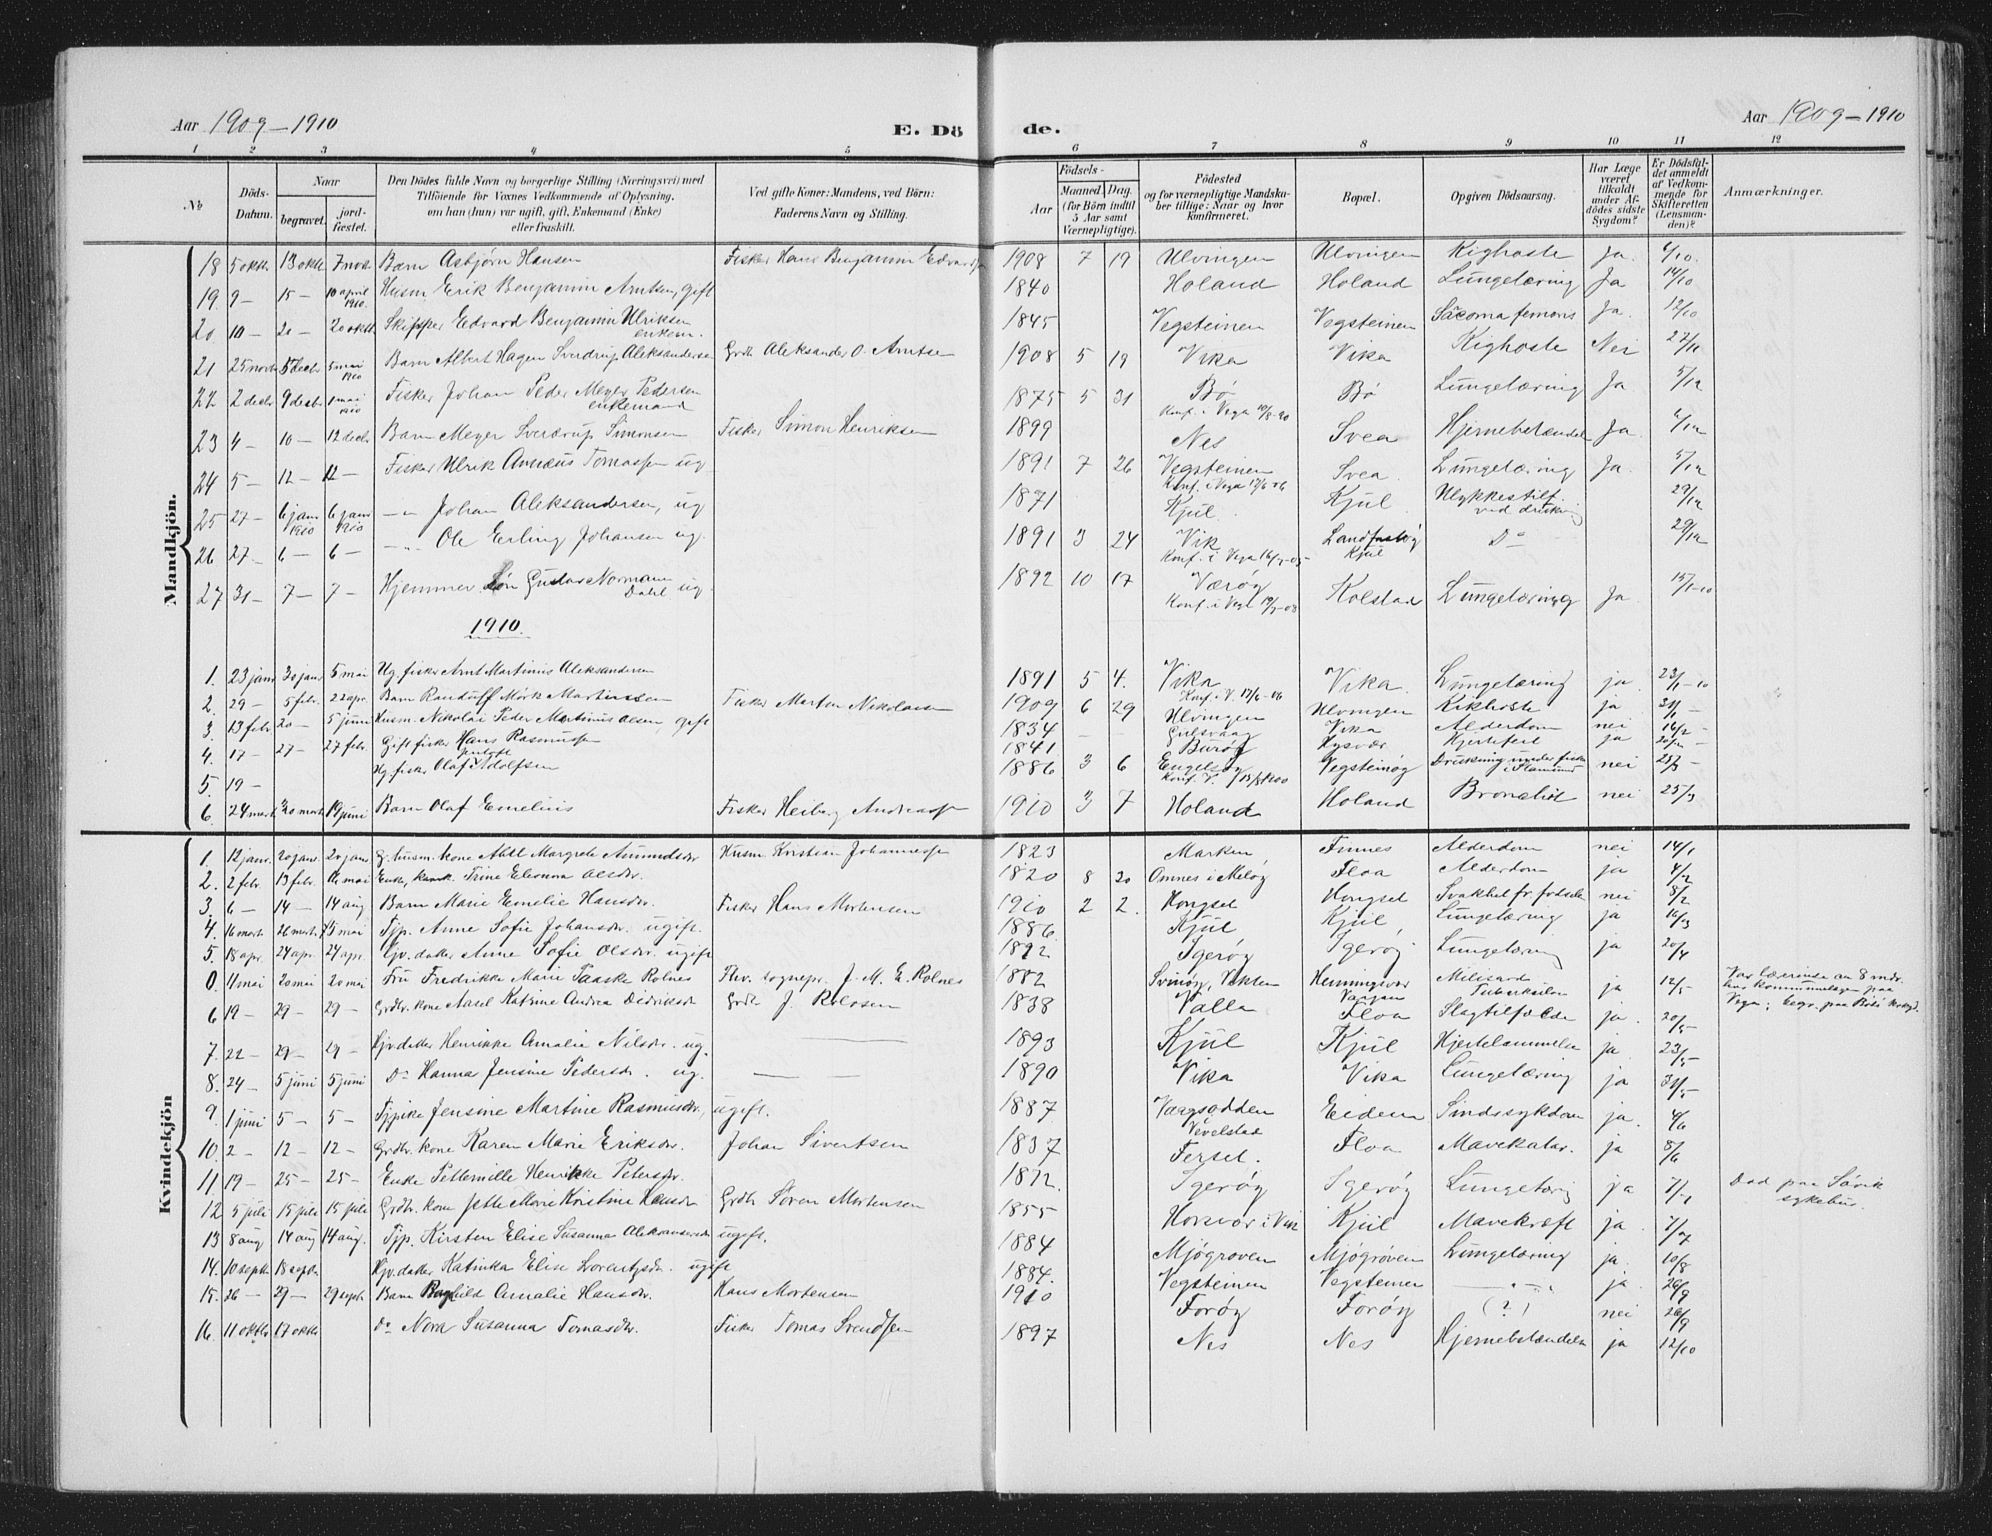 Aar 1909-1910
E. Döde.
Aar 1909-1910
1 2 3 4 5 6 7 8 9 10 11 12
№
Döds-Datum.
Naar
begravet.
jord-fæstet.
Den Dödes fulde Navn og borgerlige Stilling (Næringsvei) med
Tilföiende för Voxnes Vedkommende af Oplysning,
om han (hun) var ugift, gift, Enkemand (Enke)
eller fraskilt.
Ved gifte Koner: Mandens, ved Börn:
Faderens Navn og Stilling.
Födsels-
Aar
Maaned. Dag.
(for Börn indtil
5 Aar samt
Værnepligtige).
Födested
og for værnepligtige Mandska-
ber tillige: Naar og hvor
Konfirmeret.
Bopæl.
Opgiven Dödsaarsag.
Har Læge
været
tilkaldt
under Af-
dödes sidste
Sygdom?
Er Dödsfal-
det anmeldt
af Vedkom-
mende for
Skifteretten
(Lensman-
den)?
Anmærkninger.
Mandkjön.
18 5 oktbr 13 oktbr 7 novbr Barn Asbjørn Hansen Fisker Hans Benjamin Edvardsen 1908 7 19 Ulvingen Ulvingen Kighoste Ja. 6/10.
19 9 — 15 — 10 april 1910. Husm Erik Benjamin Arntsen, gift 1840 Holand Holand Lungetæring Ja 14/10
20 10 — 20 — 20 oktbr Skipper Edvard Benjamin Ulriksen enkem. 1845 Vegsteinen Vegsteinen Sacoma femoris Ja. 12/10
21 25 novbr 5 decbr 5 mai 1910 Barn Albert Hagen Sverdrup Aleksandersen Grdbr Aleksander O. Arntsen 1908 5 19 Vika Vika Kighoste Nei 27/11
22 2 decbr 9 decbr 1 mai 1910 Fisker Johan Peder Meyer Pedersen enkemand 1875 5 31 Bø Konf. i Vega Bø Lungetæring Ja 5/12
23 4 — 10 — 12 decbr Barn Meyer Sverdrup Simonsen Fisker Simon Henriksen 1899 Nes Svea Hjernebetændel Ja. 6/12
24 5 — 12 — 12 — Fisker Ulrik Annæus Tomassen ug 1891 7 26 Vegsteinen Konf. i Vega 17/6-06 Svea Lungetæring Ja. 5/12
25 27 — 6 janr 1910 6 janr 1910 — " Johan Aleksandersen, ug 1871 Kjul. Kjul Ulykkestilf. ved drukning 29/12
26 27 — 6 — 6 — — " Ole Erling Johansen ug. 1891 3 24 Vik Konf. i Vega Kjul Do 29/12
27 31 — 7 — 7 — Hjemmev. Søn Gustav Norman Dahl ug 1892 10 17 Værøy Konf. i Vega Kolstad Lungetæring Ja 15/1-10
1910.
1. 23 janr 30 janr 5 mai Ug. fisker Arnt Martinus Aleksandersen 1891 5 4. Vika Konf. i V. 17/6-06 Vika Lungetæring ja 23/1-10
2. 29 — 5 febr. 22 apr. Barn Mørk Martinssen Fisker Morten Nikolaisen 1909 6 29 Ulvingen Ulvingen Kikhoste ja 31/1 —
3. 13 febr 20 — 5 juni Husm. Nikolai Peder Martinus Olsen, gift 1834 — — Gulsvaag Vika Alderdom nei 16/2 —
4. 17 — 27 — 27 febr. Gift fisker Hans Rasmussen 1841 Burøy Hysvær Hjertefeil ja
5. 19 — Ug. fisker Olaf Adolfsen 1886 3 6 Engelsøy Vegsteinøy Drukning under fiske nei
6. 24 marts 30 marts 19 juni Barn Olaf Emelius Fisker Heiberg Andreassen 1910 3 7 Holand Holand Bronchit nei 25/3
Kvindekjön
1. 12 janr. 20 janr 20 janr G. husm. kone Abel Margrete Amundsdr Husm Kristian Johannessen 1823 Marken Finnes Alderdom nei 14/1
2. 2 febr. 13 febr. 16 mai Enke, Trine Eleonora Olsdr. 1820 8 20 Omnes i Meløy Floa Alderdom ja 4/2
3. 6 — 14 — 14 aug Barn Marie Emelie Hansdr. Fisker Hans Mortensen 1910 2 2. Hongset Hongset Svakhet fr. fødselen nei 8/2
4. 16 marts 26 marts 15 mai Tjp. Anne Sofie Johansdr. ugift. 1886. Kjul Kjul Lungetæring ja 16/3
5. 18 apr. 24 apr. 24 apr. Hjv. datter Anne Sofie Olsdr. ugift 1892. Igerøy Igerøy Lungetæring ja 20/4
0. 11 mai 20 mai 20 mai Fru Fredrikke Marie Taaske Rolnes Fhv. sognepr. J. M. E. Rolnes 1882 Svinøy, Vekten Henningsvær Vaagan Miliær Tuberkulose ja 12/5 Var lærerinde en 8 mdr. her kommunelægen paa Vega; begr. paa Bodø kirkeg.
6 19 — 29 — 29 — Grdbr. kone Aasel Katrine Andrea Didriksdr Grdbr J. Rolosen 1838 Valla Floa Slagtilfælde ja. 20/5
7. 22 — 29 — 29 — Hjv. datter Henrikke Amalie Nilsdr. ug. 1893 Kjul Kjul Hjertelammelse ja. 23/5
8. 24 — 5 juni 5 juni Do Hanna Jensine Pedersdr. ug. 1890 Vika Vika Lungetæring ja 31/5
9. 1 juni 5 — 5 — Tjpike Jensine Martine Rasmusdr., ugift. 1887 Vægsodden Vevelstad Eidem Sindssykdom ja. 4/6
10. 2 — 12 — 12 — Grdbr. kone Karen Marie Eriksdr. Johan Sivertsen 1837 Ferset. Floa Mavekatar. ja 8/6
11. 19 — 25 — 25 — Enke Pettemille Henrikke Petersdr. 1872. Igerøy Igerøy Lungetæring ja 7/7 Død paa Søvik sykehus.
12 5 juli 15 juli 15 juli Grdbr. kone Jette Marie Kristine Hansdr Grdbr Søren Mortensen 1855 Horsvær i Vik Kjul Mavekræft ja. 7/7
13 8 aug 14 aug 14 aug. Tjp. Kirsten Elise Susanna Aleksandersdr ugift. 1884 Mjøgroven Mjøgrøven Lungetæring ja. 10/8
14. 10 septbr 18 septbr Hjv. datter Katinka Elise Lorentzdr. ugift 1884. Vegsteinen Vegsteinen — " — ja. 26/9
15. 26 — 29 — 29 septbr. Barn Ragnhild Amalie Hansdr. Hans Mortensen 1910 Forøy Forøy (?) nei 26/9
16. 11 oktbr 17 oktbr Do Nora Susanna Tomasdr. Fisker Tomas Svendsen 1897 Nes Nes Hjernebetændelse ja 12/10